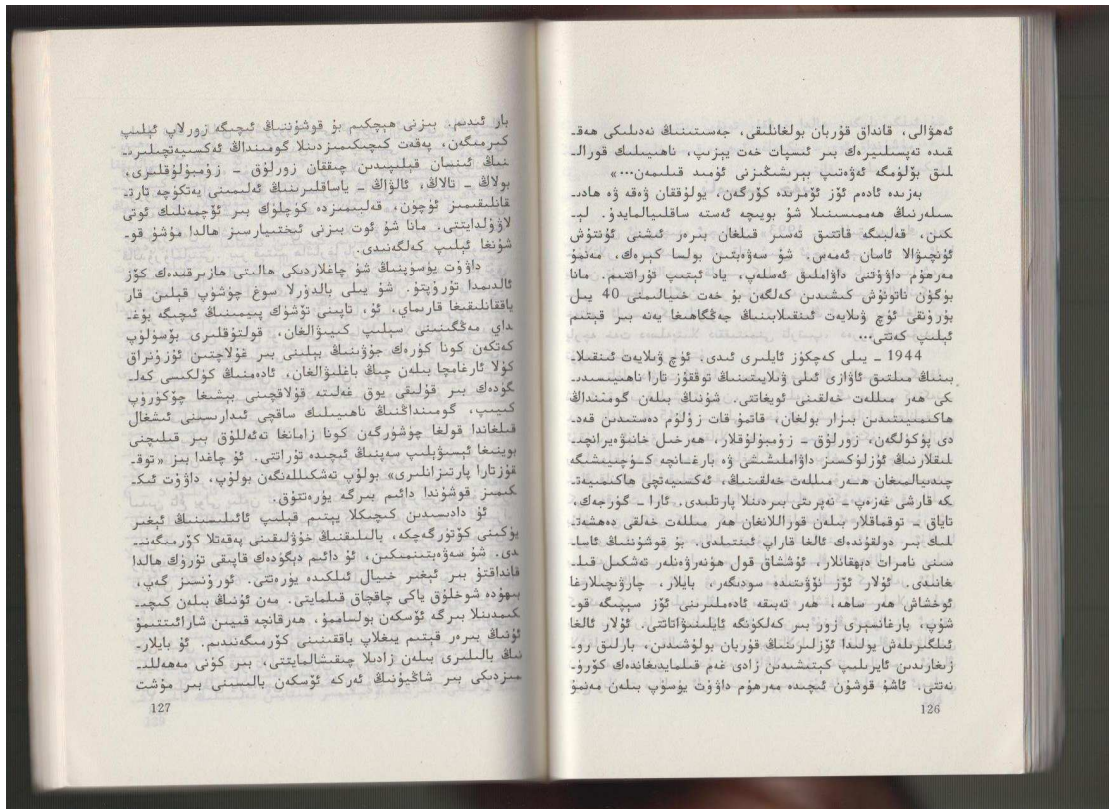 ئەھۋالى، قانداق قۇربان بولغانلىقى، جەسىتىنىڭ نەدىلىكى ھەق-
قىدە تەپسىلىيرەك بىر ئىسپات خەت يېزىپ، ناھىيىلىك قورال-
لىق بۆلۈمگە ئەۋەتىپ بېرىشىڭىزنى ئۈمىد قىلىمەن...»
بەزىدە ئادەم ئۆز ئۆمرىدە كۆرگەن، يولۇققان ۋەقە ۋە ھادى-
سىلەرنىڭ ھەممىسىنىلا شۇ بويىچە ئەستە ساقلىيالمايدۇ. لې-
كىن، قەلبىگە قاتتىق تەسىر قىلغان بىرەر ئىشنى ئۇنتۇش
ئۇنچىۋالا ئاسان ئەمەس. شۇ سەۋەبتىن بولسا كېرەك، مەنمۇ
مەرھۇم داۋۇتنى داۋاملىق ئەسلەپ، ياد ئېتىپ تۇراتتىم. مانا
بۈگۈن ناتونۇش كىشىدىن كەلگەن بۇ خەت خىيالىمنى 40 يىل
بۇرۇنقى ئۈچ ۋىلايەت ئىنقىلابىنىڭ جەڭگاھىغا يەنە بىر قېتىم
ئېلىپ كەتتى...
1944 - يىلى كەچكۈز ئايلىرى ئىدى. ئۈچ ۋىلايەت ئىنقىلا-
بىنىڭ مىلتىق ئاۋازى ئىلى ۋىلايىتىنىڭ توققۇز تارا ناھىيىسىدى-
كى ھەر مىللەت خەلقىنى ئويغاتتى. شۇنىڭ بىلەن گومىنداڭ
ھاكىمىيىتىدىن بىزار بولغان، قاتمۇ قات زۇلۇم دەستىدىن قەد-
دى پۈكۈلگەن، زورلۇق - زۇمبۇلۇقلار، ھەرخىل خانىۋەيرانچى-
لىقلارنىڭ ئۈزلۈكسىز داۋاملىشىشى ۋە بارغانچە كۈچىيىشىگە
چىدىيالمىغان ھەر مىللەت خەلقىنىڭ، ئەكسىيەتچى ھاكىمىيەت-
كە قارشى غەزەپ - نەپرىتى بىردىنلا پارتلىدى. ئارا - گۈرجەك،
تاياق - توقماقلار بىلەن قوراللانغان ھەر مىللەت خەلقى دەھشەت-
لىك بىر دولقۇندەك ئالغا قاراپ ئىنتىلدى. بۇ قوشۇننىڭ ئاسا-
سىنى نامرات دېھقانلار، ئۇششاق قول ھۈنەرۋەنلەر تەشكىل قىل-
غانىدى. ئۇلار ئۆز نۆۋىتىدە سودىگەر، بايلار، چارۋىچىلارغا
ئوخشاش ھەر ساھە، ھەر تەبىقە ئادەملىرىنى ئۆز سېپىگە قو-
شۇپ، بارغانسېرى زور بىر كەلكۈنگە ئايلىنىۋاتاتتى. ئۇلار ئالغا
ئىلگىرىلەش يولىدا ئۆزلىرىنىڭ قۇربان بولۇشىدىن، بارلىق رو-
زىغارىدىن ئايرىلىپ كېتىشىدىن زادى غەم قىلمايدىغاندەك كۆرۈ-
نەتتى. ئاشۇ قوشۇن ئىچىدە مەرھۇم داۋۇت يۈسۈپ بىلەن مەنمۇ
126
بار ئىدىم. بىزنى ھېچكىم بۇ قوشۇننىڭ ئىچىگە زورلاپ ئېلىپ
كىرمىگەن، پەقەت كىچىكىمىزدىنلا گومىنداڭ ئەكسىيەتچىلىرى-
نىڭ ئىنسان قېلىپىدىن چىققان زورلۇق - زۇمبۇلۇقلىرى،
بولاڭ - تالاڭ، ئالۋاڭ - ياساقلىرىنىڭ ئەلىمىنى يەتكۈچە تارت-
قانلىقىمىز ئۈچۈن، قەلبىمىزدە كۈچلۈك بىر ئۆچمەنلىك ئوتى
لاۋۇلدايتتى. مانا شۇ ئوت بىزنى ئىختىيارسىز ھالدا مۇشۇ قو-
شۇنغا ئېلىپ كەلگەنىدى.
داۋۇت يۈسۈپنىڭ شۇ چاغلاردىكى ھالىتى ھازىرقىدەك كۆز
ئالدىمدا تۇرۇپتۇ. شۇ يىلى بالدۇرلا سوغ چۈشۈپ قېلىن قار
ياققانلىقىغا قارىماي، ئۇ، تاپىنى تۆشۈك پىيمىسىنىڭ ئىچىگە بۇغ-
داي مەڭگىنىنى سېلىپ كىيىۋالغان، قولتۇقلىرى بۆسۈلۈپ
كەتكەن كونا كۆرەك جۇۋىنىڭ بېلىنى بىر غۇلاچتىن ئۇزۇنراق
كۇلا ئارغامچا بىلەن چىڭ باغلىۋالغان، ئادەمنىڭ كۈلكىسى كەل-
گۈدەك بىر قۇلىقى يوق غەلىتە قۇلاقچىنى بېشىغا چۆكۈرۈپ
كىيىپ، گومىنداڭنىڭ ناھىيىلىك ساقچى ئىدارىسىنى ئىشغال
قىلغاندا قولغا چۈشۈرگەن كونا زامانغا تەئەللۇق بىر قىلىچنى
بوينىغا ئېسىۋېلىپ سەپنىڭ ئىچىدە تۇراتتى. ئۇ چاغدا بىز «توق-
قۇزتارا پارتىزانلىرى» بولۇپ تەشكىللەنگەن بولۇپ، داۋۇت ئىك-
كىمىز قوشۇندا دائىم بىرگە يۈرەتتۇق.
ئۇ دادىسىدىن كىچىكلا يېتىم قېلىپ ئائىلىسىنىڭ ئېغىر
يۈكىنى كۆتۈرگەچكە، بالىلىقنىڭ خۇۋلىقىنى پەقەتلا كۆرمىگەنى-
دى. شۇ سەۋەبتىنمىكىن، ئۇ دائىم دېگۈدەك قاپىقى تۈرۈك ھالدا
قانداقتۇ بىر ئېغىر خىيال ئىلكىدە يۈرەتتى. ئورۇنسىز گەپ،
بىھۇدە شوخلۇق ياكى چاقچاق قىلمايتتى. مەن ئۇنىڭ بىلەن كىچى-
كىمدىنلا بىرگە ئۆسكەن بولساممۇ، ھەرقانچە قىيىن شارائىتتىمۇ
ئۇنىڭ بىرەر قېتىم يىغلاپ باققىنىنى كۆرمىگەنىدىم. ئۇ بايلار-
نىڭ بالىلىرى بىلەن زادىلا چىقىشالمايتتى، بىر كۈنى مەھەللى-
مىزدىكى بىر شاڭيۇنىڭ ئەركە ئۆسكەن بالىسىنى بىر مۇشت
127